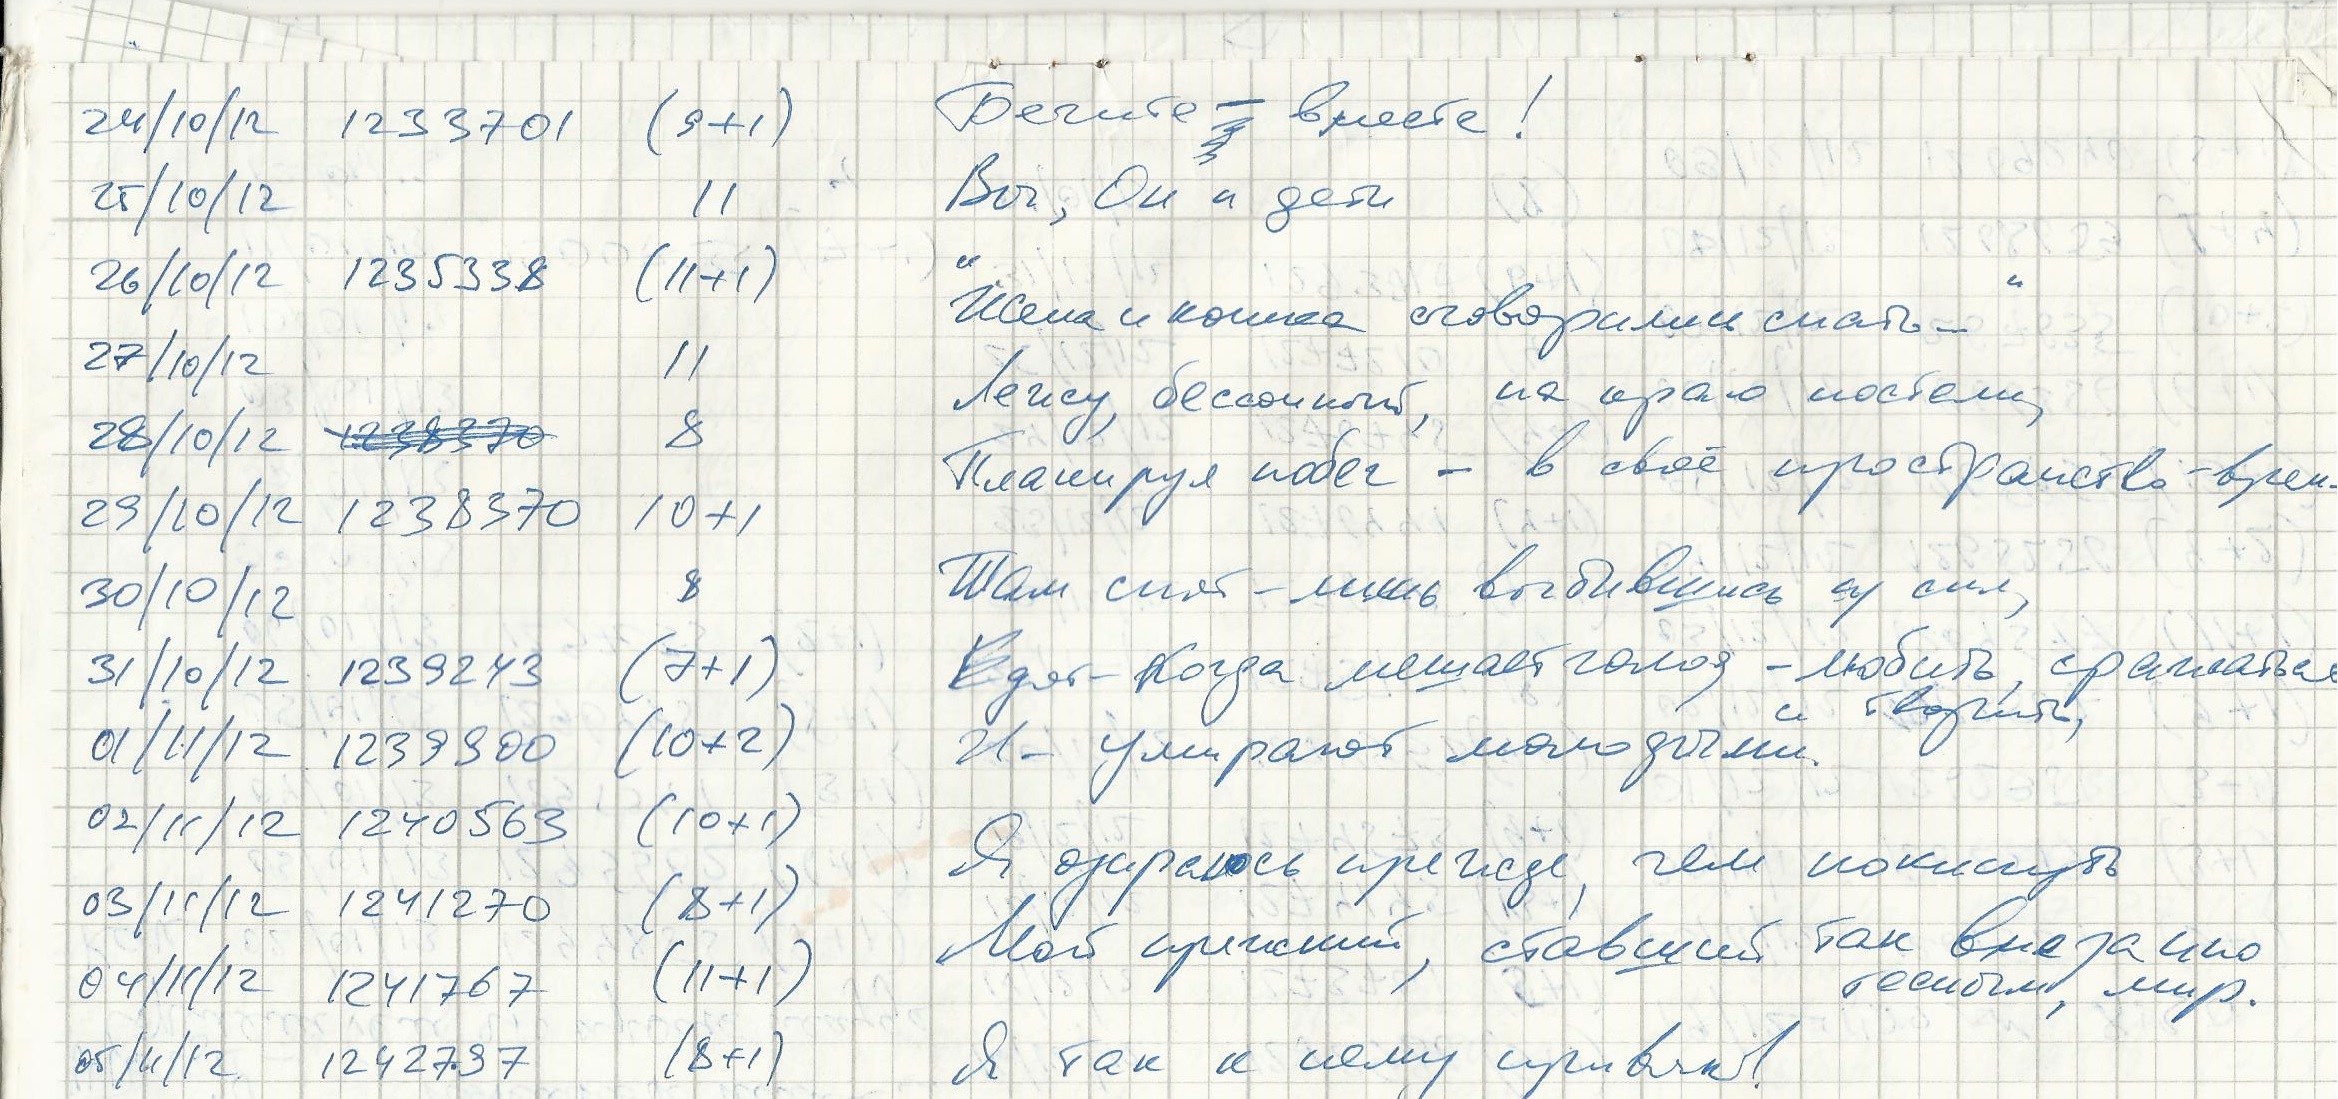 24/10/12 1233701 (9+1) Бегите – вместе!
25/10/12 11 Вы, Он и дети
26/10/12 1235338 (11+1) "
Жена и кошка сговорились спать – "
27/10/12 11
Лежу, бессонный, на краю постели,
28/10/12 1238370 8
Планируя побег – в своё пространство-врем-
29/10/12 1238370 10+1
30/10/12 8 Там спят – лишь выбившись из сил,
31/10/12 1239243 (7+1) Едят – Когда мешает голод – любить, сражаться
и творить,
01/11/12 1239900 (10+2) И – умирают молодыми.
02/11/12 1240563 (10+1)
Я озираюсь прежде, чем покинуть
03/11/12 1241270 (8+1)
Мой прежний, ставший так внезапно
тесным, мир.
04/11/12 1241767 (11+1)
05/11/12 1242797 (8+1) Я так к нему привык!